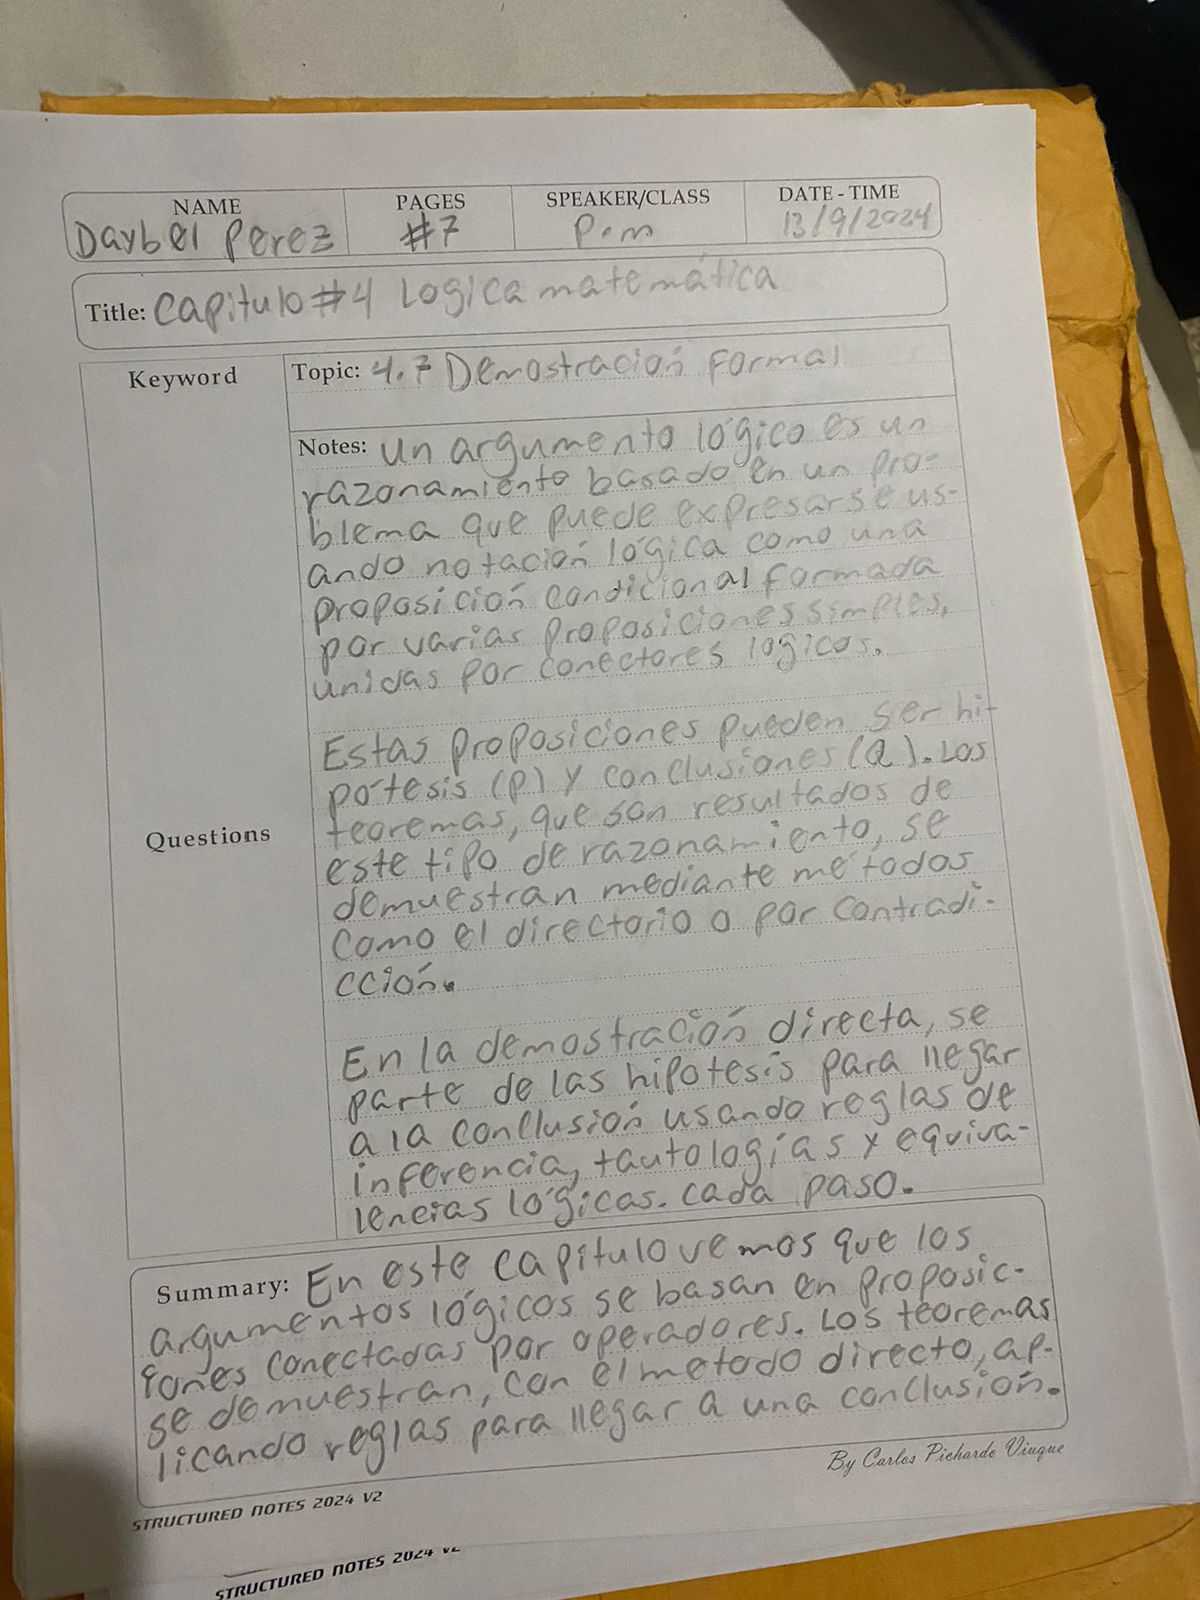 NAME PAGES SPEAKER/CLASS DATE - TIME
Daybel Perez #7 P.m 13/9/2024
Title: Capitulo #4 Logica matemática
Keyword
Topic: 4.7 Demostración formal
Notes: un argumento lógico es un
razonamiento basado en un pro-
blema que puede expresarse us-
ando notación lógica como una
proposición condicional formada
por varias proposiciones simples,
unidas por conectores logicos.
Estas proposiciones pueden ser hi-
pótesis (P) y conclusiones (Q). Los
teoremas, que son resultados de
este tipo de razonamiento, se
demuestran mediante métodos
como el directorio o por contradi-
cción.
Questions
En la demostración directa, se
parte de las hipotesis para llegar
a la conclusión usando reglas de
inferencia, tautologías y equiva-
lencias lógicas. cada paso.
Summary: En este capitulo vemos que los
argumentos lógicos se basan en proposic-
iones conectadas por operadores. Los teoremas
se demuestran, con el metodo directo, ap-
licando reglas para llegar a una conclusión.
By Carlos Pichardo Viuque
STRUCTURED NOTES 2024 V2
STRUCTURED NOTES 2024 V2